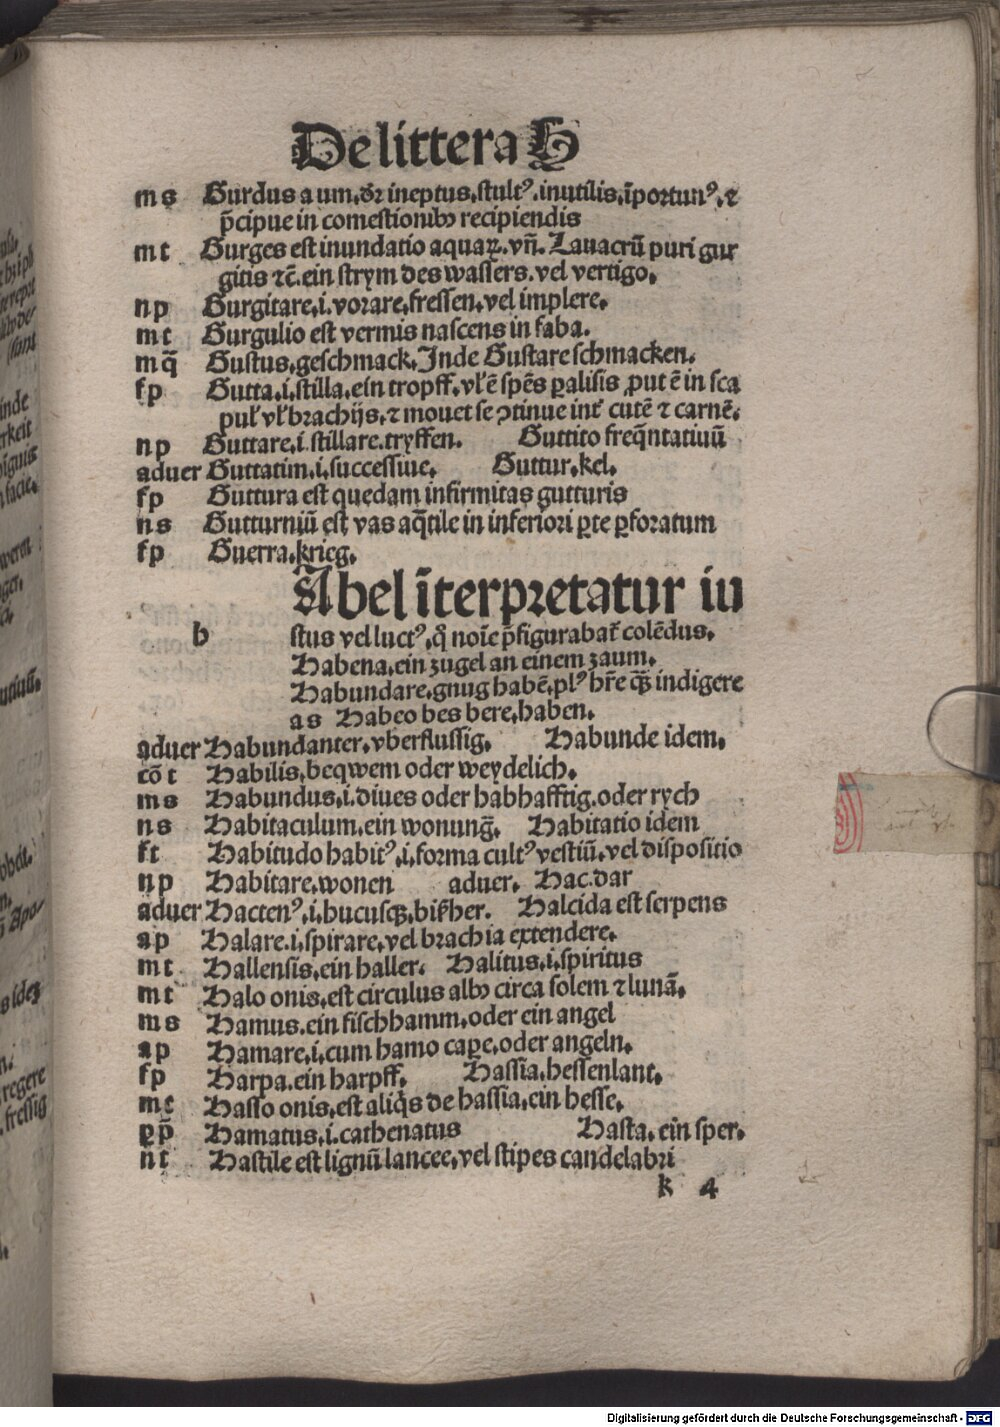 De littera H
m s Gurdus a um. dr̄ ineptus, stultꝰ, inutilis, īportunꝰ, ⁊
p̄cipue in comestionibꝫ recipiendis
m t Gurges est inundatio aquaꝝ. vn̄. Lauacrū puri gur
gitis ⁊c̄. ein strym des wassers. vel vertigo.
n p Gurgitare, i. vorare, fressen, vel implere.
m t Gurgulio est vermis nascens in faba.
m q̄ Gustus, geschmack. Inde Gustare schmacken.
f p Gutta, i. stilla, ein tropff, vl̓ ē spēs ꝑalisis ꝓut ē in sca
pul̓ vl̓ brachijs, ⁊ mouet se ꝯtinue int̓ cutē ⁊ carnē.
n p Guttare, i. stillare. tryffen. Guttito freq̄ntatiuū
aduer Guttatim, i. successiue. Guttur, kel.
f p Guttura est quedam infirmitas gutturis
n s Gutturniū est vas aq̄tile in inferiori ꝑte ꝑforatum
f p Guerra, krieg.
Abel īterpretatur iu
h stus vel luctꝰ, q̄ noīe p̄figurabat̓ colēdus.
Habena, ein zugel an einem zaum.
Habundare, gnug habē, plꝰ hr̄e qꝫ indigere
a s Habeo bes bere, haben.
aduer Habundanter, vberflussig. Habunde idem.
cō t Habilis, beqwem oder weydelich.
m s Habundus, i. diues oder habhafftig. oder rych
n s Habitaculum, ein wonung. Habitatio idem
f t Habitudo habitꝰ, i. forma cultꝰ vestiū, vel dispositio
n p Habitare, wonen aduer. Hac. dar
aduer Hactenꝰ, i. hucusqꝫ, bißher. Halcida est serpens
a p Halare. i. spirare, vel brachia extendere.
m t Hallensis, ein haller. Halitus, i. spiritus
m t Halo onis, est circulus albꝰ circa solem ⁊ lunā.
m s Hamus. ein fischhamm, oder ein angel
a p Hamare, i. cum hamo caꝑe, oder angeln.
f p Harpa. ein harpff. Hassia, hessenlant.
m t Hasso onis, est aliq̄s de hassia, ein hesse.
ꝑ p̄ Hamatus, i. cathenatus Hasta, ein sper.
n t Hastile est lignū lancee, vel stipes candelabri
k 4
Digitalisierung gefördert durch die Deutsche Forschungsgemeinschaft - DFG